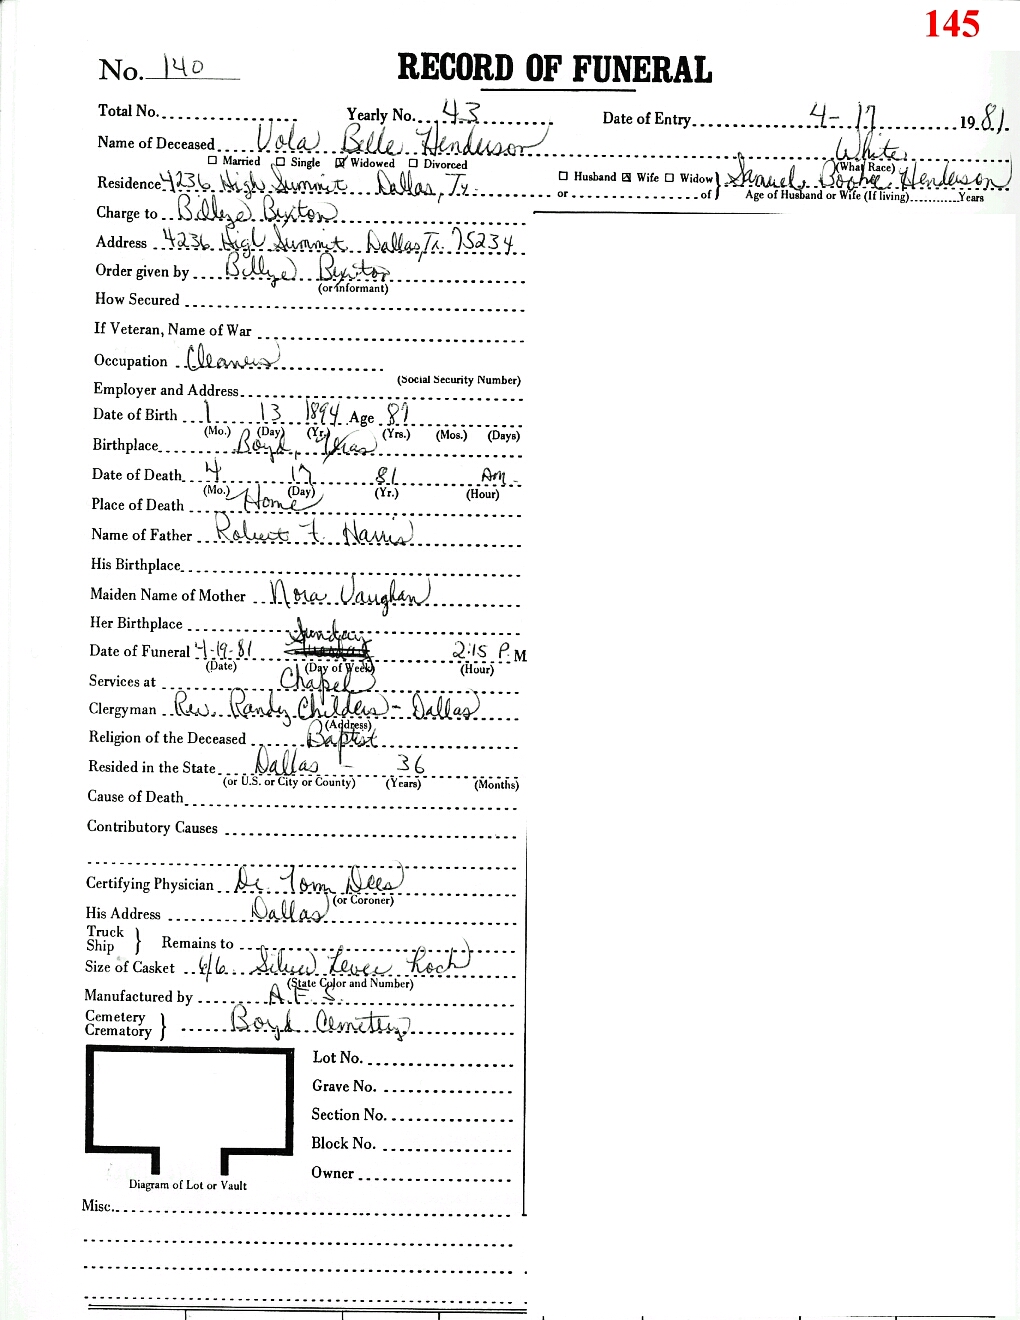 145
No. 140 RECORD OF FUNERAL
Total No. Yearly No. 43 Date of Entry 4-17 1981
Name of Deceased Vola Belle Henderson White
☐ Married ☐ Single ☒ Widowed ☐ Divorced (What Race)
Residence 4236 High Summit Dallas, Tx. ☐ Husband ☒ Wife ☐ Widow } Samuel Henderson
or of Age of Husband or Wife (If living) Years
Charge to Billye
Address 4236 High Summit Dallas, Tx. 75234
Order given by Billye
(or informant)
How Secured
If Veteran, Name of War
Occupation Cleaners
(Social Security Number)
Employer and Address
Date of Birth 1 13 1894 Age 87
(Mo.) (Day) (Yr.) (Yrs.) (Mos.) (Days)
Birthplace Boyd, Texas
Date of Death 4 17 81 Am
(Mo.) (Day) (Yr.) (Hour)
Place of Death Home
Name of Father Robert F. Harris
His Birthplace
Maiden Name of Mother Nora Vaughan
Her Birthplace
Sunday
Date of Funeral 4-19-81 2:15 P.M
(Date) (Day of Week) (Hour)
Services at Chapel
Clergyman Rev. Randy Childers - Dallas
(Address)
Religion of the Deceased Baptist
Resided in the State Dallas - 36
(or U.S. or City or County) (Years) (Months)
Cause of Death
Contributory Causes
Certifying Physician Dr. Tom Dees
(or Coroner)
His Address Dallas
Truck
Ship } Remains to
Size of Casket 6/6 Silver Lock
(State Color and Number)
Manufactured by A.F.S.
Cemetery
Crematory } Boyd Cemetery
Lot No.
Grave No.
Section No.
Block No.
Owner
Diagram of Lot or Vault
Misc.